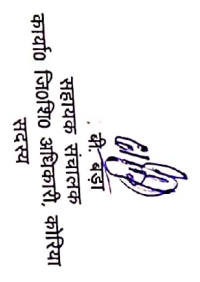 बी. बड़ा
सहायक संचालक
कार्या0 जि0शि0 अधिकारी, कोरिया
सदस्य